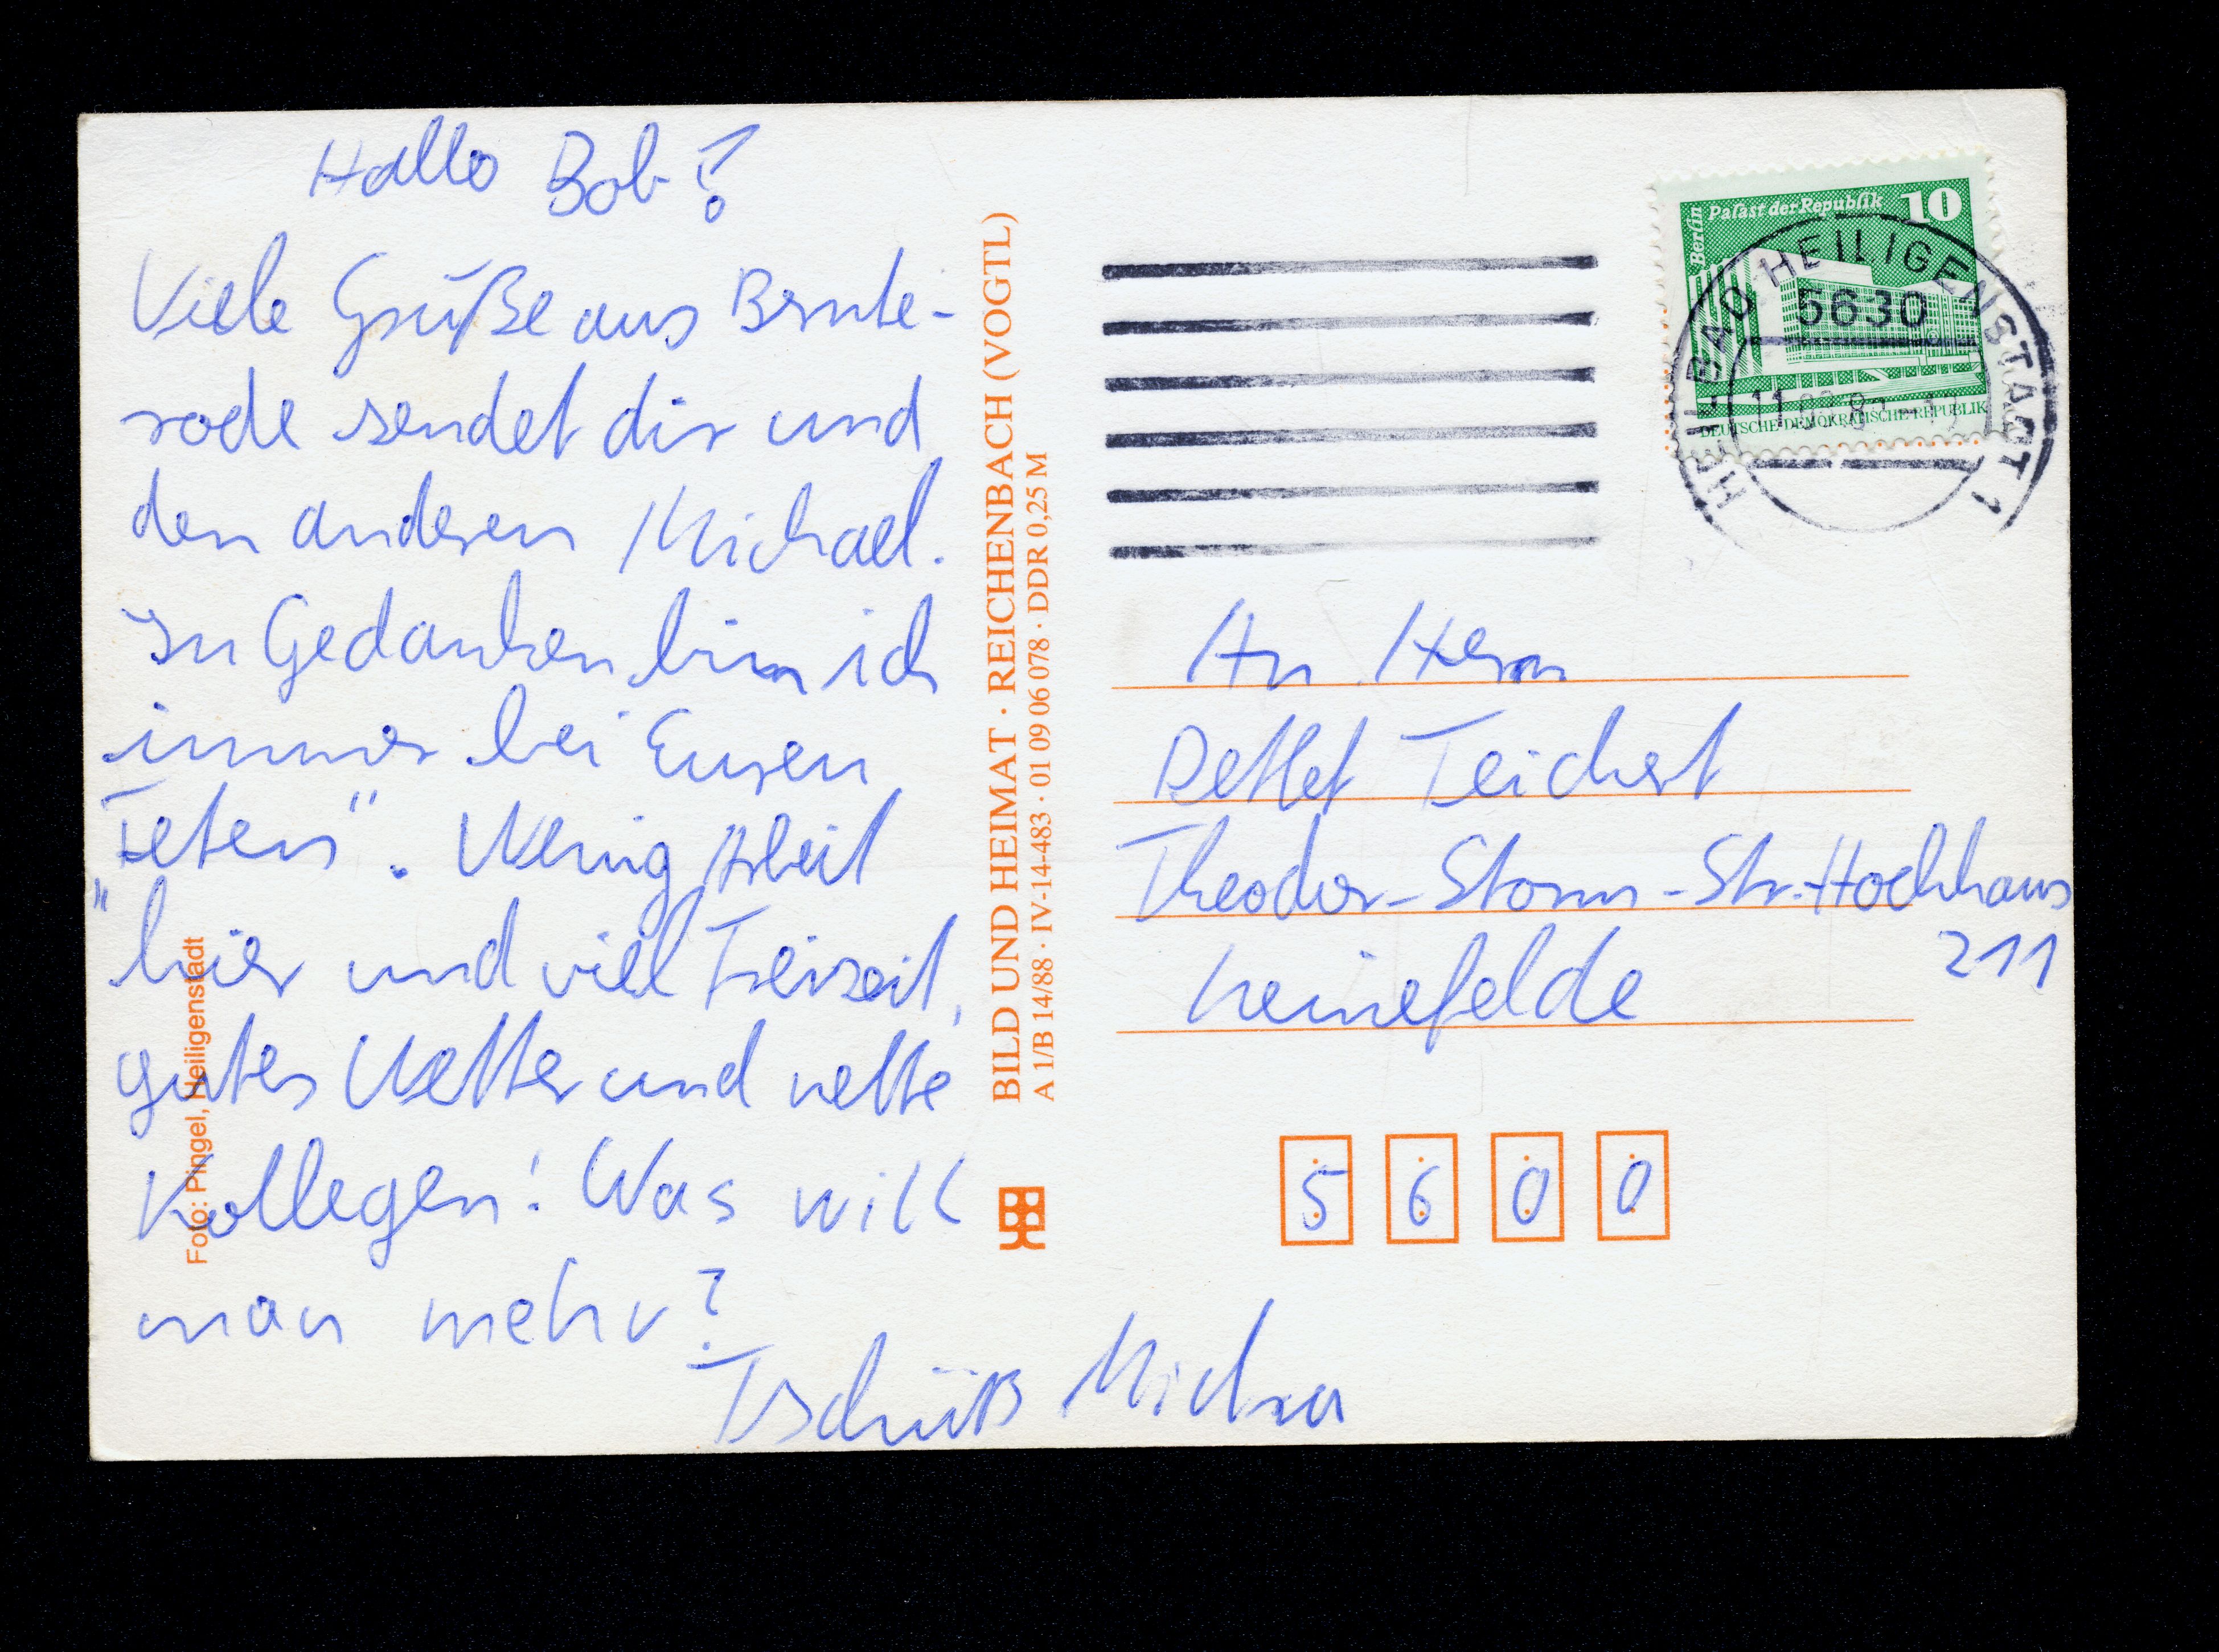 Hallo Bob!
Viele Grüße aus Bernte-
rode sendet dir und
den anderen Michael.
In Gedanken bin ich
immer bei Euren
"Feten". Wenig Arbeit
hier und viel Freizeit,
gutes Wetter und nette
Kollegen! Was will
man mehr?
Tschüß Micha
Foto: Pingel, Heiligenstadt
BILD UND HEIMAT · REICHENBACH (VOGTL)
A 1/B 14/88 · IV-14-483 · 01 09 06 078 · DDR 0,25 M
Berlin
Palast der Republik 10
DEUTSCHE DEMOKRATISCHE REPUBLIK
HEILBAD HEILIGENSTADT 1
5630
An Herrn
Detlef Teichert
Theodor-Storm-Str. Hochhaus
211
Leinefelde
5 6 0 0